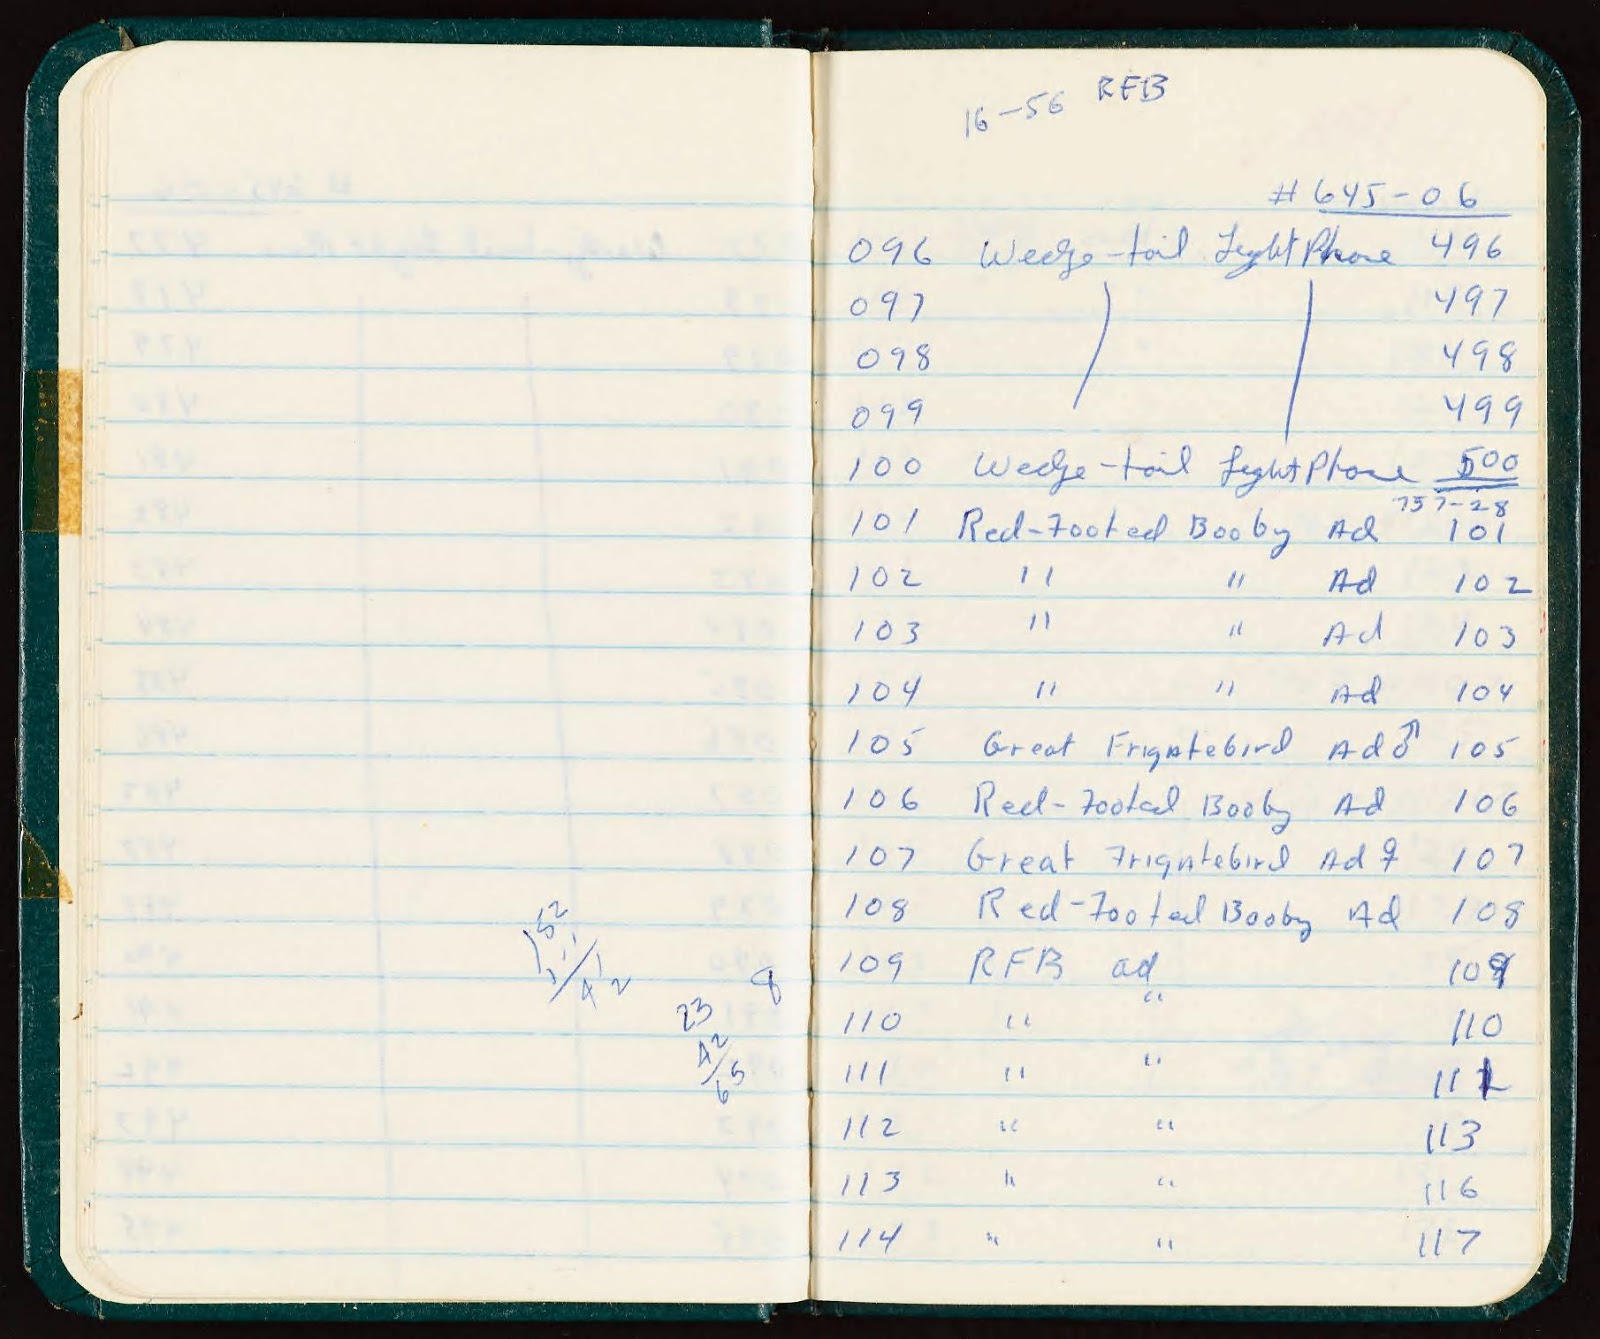 52
42
8
23
42
65
16-56 RFB
#645-06
096 Wedge-tail LightPhase 496
097 497
098 498
099 499
100 Wedge-tail LightPhase 500
757-28
101 Red-Footed Booby Ad 101
102 " " Ad 102
103 " " Ad 103
104 " " Ad 104
105 Great Frigatebird Ad ♂ 105
106 Red-Footed Booby Ad 106
107 Great Frigatebird Ad ♀ 107
108 Red-Footed Booby Ad 108
109 RFB ad 109
110 " " 110
111 " " 112
112 " " 113
113 " " 116
114 " " 117